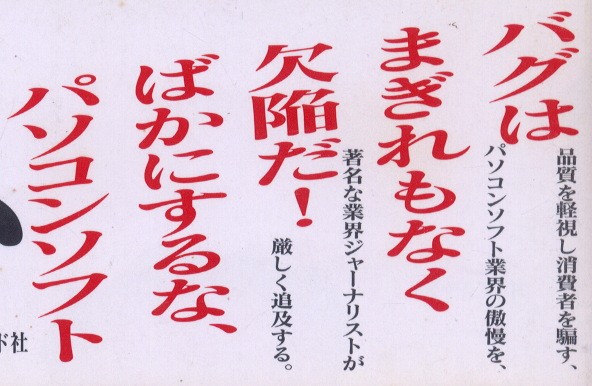 バグは
まぎれもなく
欠陥だ！
ばかにするな、
パソコンソフト
品質を軽視し消費者を騙す、
パソコンソフト業界の傲慢を、
著名な業界ジャーナリストが
厳しく追及する。
ド社